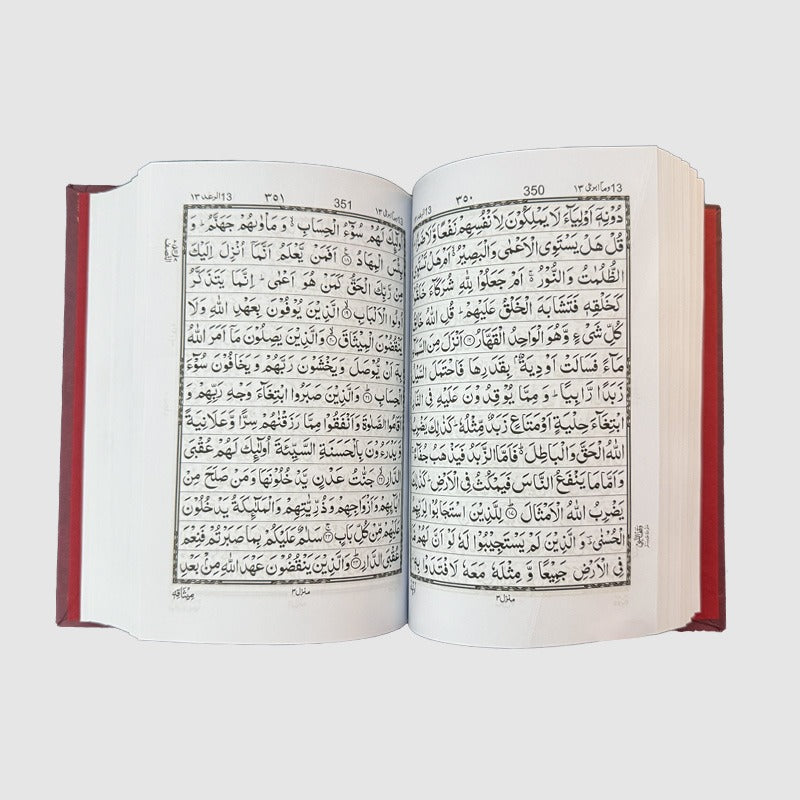 13 وما ابرئ ١٣ 350 ٣٥٠ 13
دُوْنِهٖۤ اَوْلِیَآءَ لَا یَمْلِكُوْنَ لِاَنْفُسِهِمْ نَفْعًا وَّلَا
قُلْ هَلْ یَسْتَوِی الْاَعْمٰى وَالْبَصِیْرُ ۙ اَمْ هَلْ
الظُّلُمٰتُ وَالنُّوْرُ ۚ اَمْ جَعَلُوْا لِلّٰهِ شُرَكَآءَ
كَخَلْقِهٖ فَتَشَابَهَ الْخَلْقُ عَلَیْهِمْ ؕ قُلِ اللّٰهُ
كُلِّ شَیْءٍ وَّهُوَ الْوَاحِدُ الْقَهَّارُ ۝ اَنْزَلَ مِنَ
مَآءً فَسَالَتْ اَوْدِیَةٌۢ بِقَدَرِهَا فَاحْتَمَلَ
زَبَدًا رَّابِیًا ؕ وَ مِمَّا یُوْقِدُوْنَ عَلَیْهِ فِی
ابْتِغَآءَ حِلْیَةٍ اَوْ مَتَاعٍ زَبَدٌ مِّثْلُهٗ ؕ كَذٰلِكَ
اللّٰهُ الْحَقَّ وَالْبَاطِلَ ؕ۬ فَاَمَّا الزَّبَدُ فَیَذْهَبُ جُفَآءً
وَاَمَّا مَا یَنْفَعُ النَّاسَ فَیَمْكُثُ فِی الْاَرْضِ ؕ
یَضْرِبُ اللّٰهُ الْاَمْثَالَ ۝ لِلَّذِیْنَ اسْتَجَابُوْا لِرَبِّهِمُ
الْحُسْنٰى ؔؕ وَالَّذِیْنَ لَمْ یَسْتَجِیْبُوْا لَهٗ لَوْ اَنَّ لَهُمْ
فِی الْاَرْضِ جَمِیْعًا وَّ مِثْلَهٗ مَعَهٗ لَافْتَدَوْا
منزل ٣
13 الرعد ١٣ ٣٥١ 351 13 وما ابرئ ١٣
اُولٰٓىِٕكَ لَهُمْ سُوْٓءُ الْحِسَابِ ۙ۬ وَ مَاْوٰىهُمْ جَهَنَّمُ ؕ وَ
بِئْسَ الْمِهَادُ ۝ اَفَمَنْ یَّعْلَمُ اَنَّمَاۤ اُنْزِلَ اِلَیْكَ
مِنْ رَّبِّكَ الْحَقُّ كَمَنْ هُوَ اَعْمٰى ؕ اِنَّمَا یَتَذَكَّرُ
اُولُوا الْاَلْبَابِ ۝ الَّذِیْنَ یُوْفُوْنَ بِعَهْدِ اللّٰهِ وَلَا
یَنْقُضُوْنَ الْمِیْثَاقَ ۝ وَالَّذِیْنَ یَصِلُوْنَ مَاۤ اَمَرَ اللّٰهُ
بِهٖۤ اَنْ یُّوْصَلَ وَیَخْشَوْنَ رَبَّهُمْ وَ یَخَافُوْنَ سُوْٓءَ
الْحِسَابِ ۝ وَالَّذِیْنَ صَبَرُوا ابْتِغَآءَ وَجْهِ رَبِّهِمْ وَ
اَقَامُوا الصَّلٰوةَ وَاَنْفَقُوْا مِمَّا رَزَقْنٰهُمْ سِرًّا وَّعَلَانِیَةً
وَّ یَدْرَءُوْنَ بِالْحَسَنَةِ السَّیِّئَةَ اُولٰٓىِٕكَ لَهُمْ عُقْبَى
الدَّارِ ۝ جَنّٰتُ عَدْنٍ یَّدْخُلُوْنَهَا وَمَنْ صَلَحَ مِنْ
اٰبَآىِٕهِمْ وَاَزْوَاجِهِمْ وَ ذُرِّیّٰتِهِمْ وَالْمَلٰٓىِٕكَةُ یَدْخُلُوْنَ
عَلَیْهِمْ مِّنْ كُلِّ بَابٍ ۝ سَلٰمٌ عَلَیْكُمْ بِمَا صَبَرْتُمْ فَنِعْمَ
عُقْبَى الدَّارِ ۝ وَالَّذِیْنَ یَنْقُضُوْنَ عَهْدَ اللّٰهِ مِنْۢ بَعْدِ
منزل ٣
مِیْثَاقِهٖ